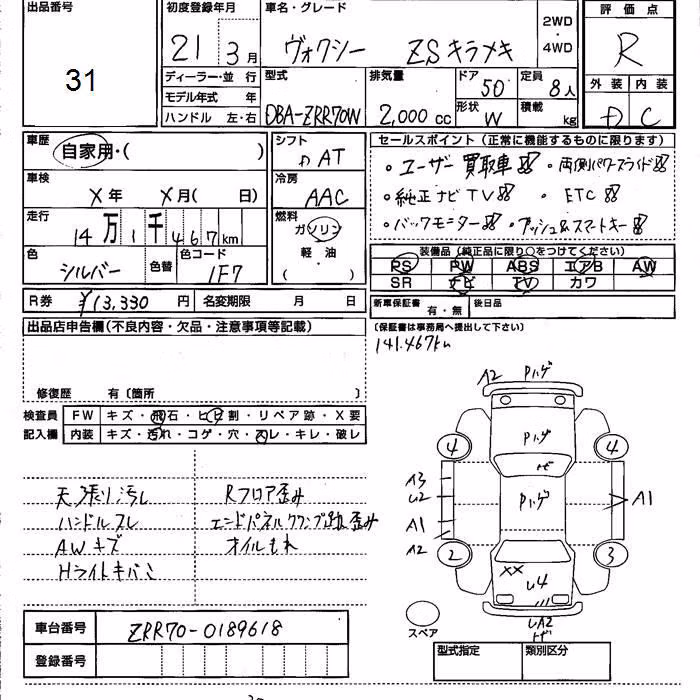 出品番号 初度登録年月 車名・グレード 2WD・4WD 評価点
31 21年 3月 ヴォクシー ZSキラメキ R
ディーラー・並行 型式 排気量 ドア 50 定員 外装 内装
モデル年式 年 DBA-ZRR70W 2,000cc 形状 W 8人 D C
ハンドル 左・右 積載 kg
車歴 自家用・( ) シフト DAT セールスポイント (正常に機能するものに限ります)
・ユーザー買取車 ・両側パワースライド
車検 X年 X月( 日) 冷房 AAC ・純正ナビTV ・ETC
走行 14万1千467km 燃料 ガソリン 軽油 ( ) ・バックモニター ・プッシュ&スマートキー
色 シルバー 色替 色コード 1F7
装備品(純正品に限り○をつけてください)
PS PW ABS エアB AW
SR ナビ TV カワ
R券 ¥13,330円 名変期限 月 日 新車保証書 有・無 後日品
出品店申告欄(不良内容・欠品・注意事項等記載) (保証書は事務局へ提出して下さい)
141,467km
修復歴 有〔箇所 〕
検査員 FW キズ・飛石・ヒビ割・リペア跡・X要
記入欄 内装 キズ・汚れ・コゲ・穴・スレ・キレ・破レ
天張り汚し Rフロア歪み
ハンドルスレ エンドパネルクランプ跡歪み
AWキズ オイルもれ
Hライトキバミ
A2 Pハゲ
Pハゲ
4 4
トビ
A3
U2 Pハゲ A1
A1
A2 2 3
XX U4
スペア UA2
トゲ
車台番号 ZRR70-0189618
登録番号
型式指定 類別区分